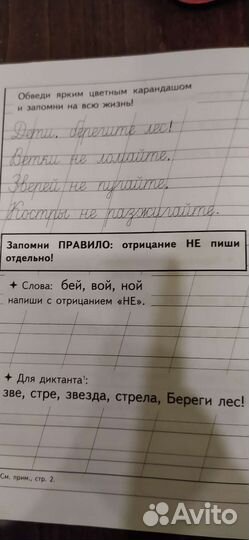 Обведи ярким цветным карандашом
и запомни на всю жизнь!
Дети, берегите лес!
Ветки не ломайте.
Зверей не пугайте.
Костры не разжигайте.
Запомни ПРАВИЛО: отрицание НЕ пиши
отдельно!
✦ Слова: бей, вой, ной
напиши с отрицанием «НЕ».
✦ Для диктанта¹:
зве, стре, звезда, стрела, Береги лес!
См. прим., стр. 2.
Avito